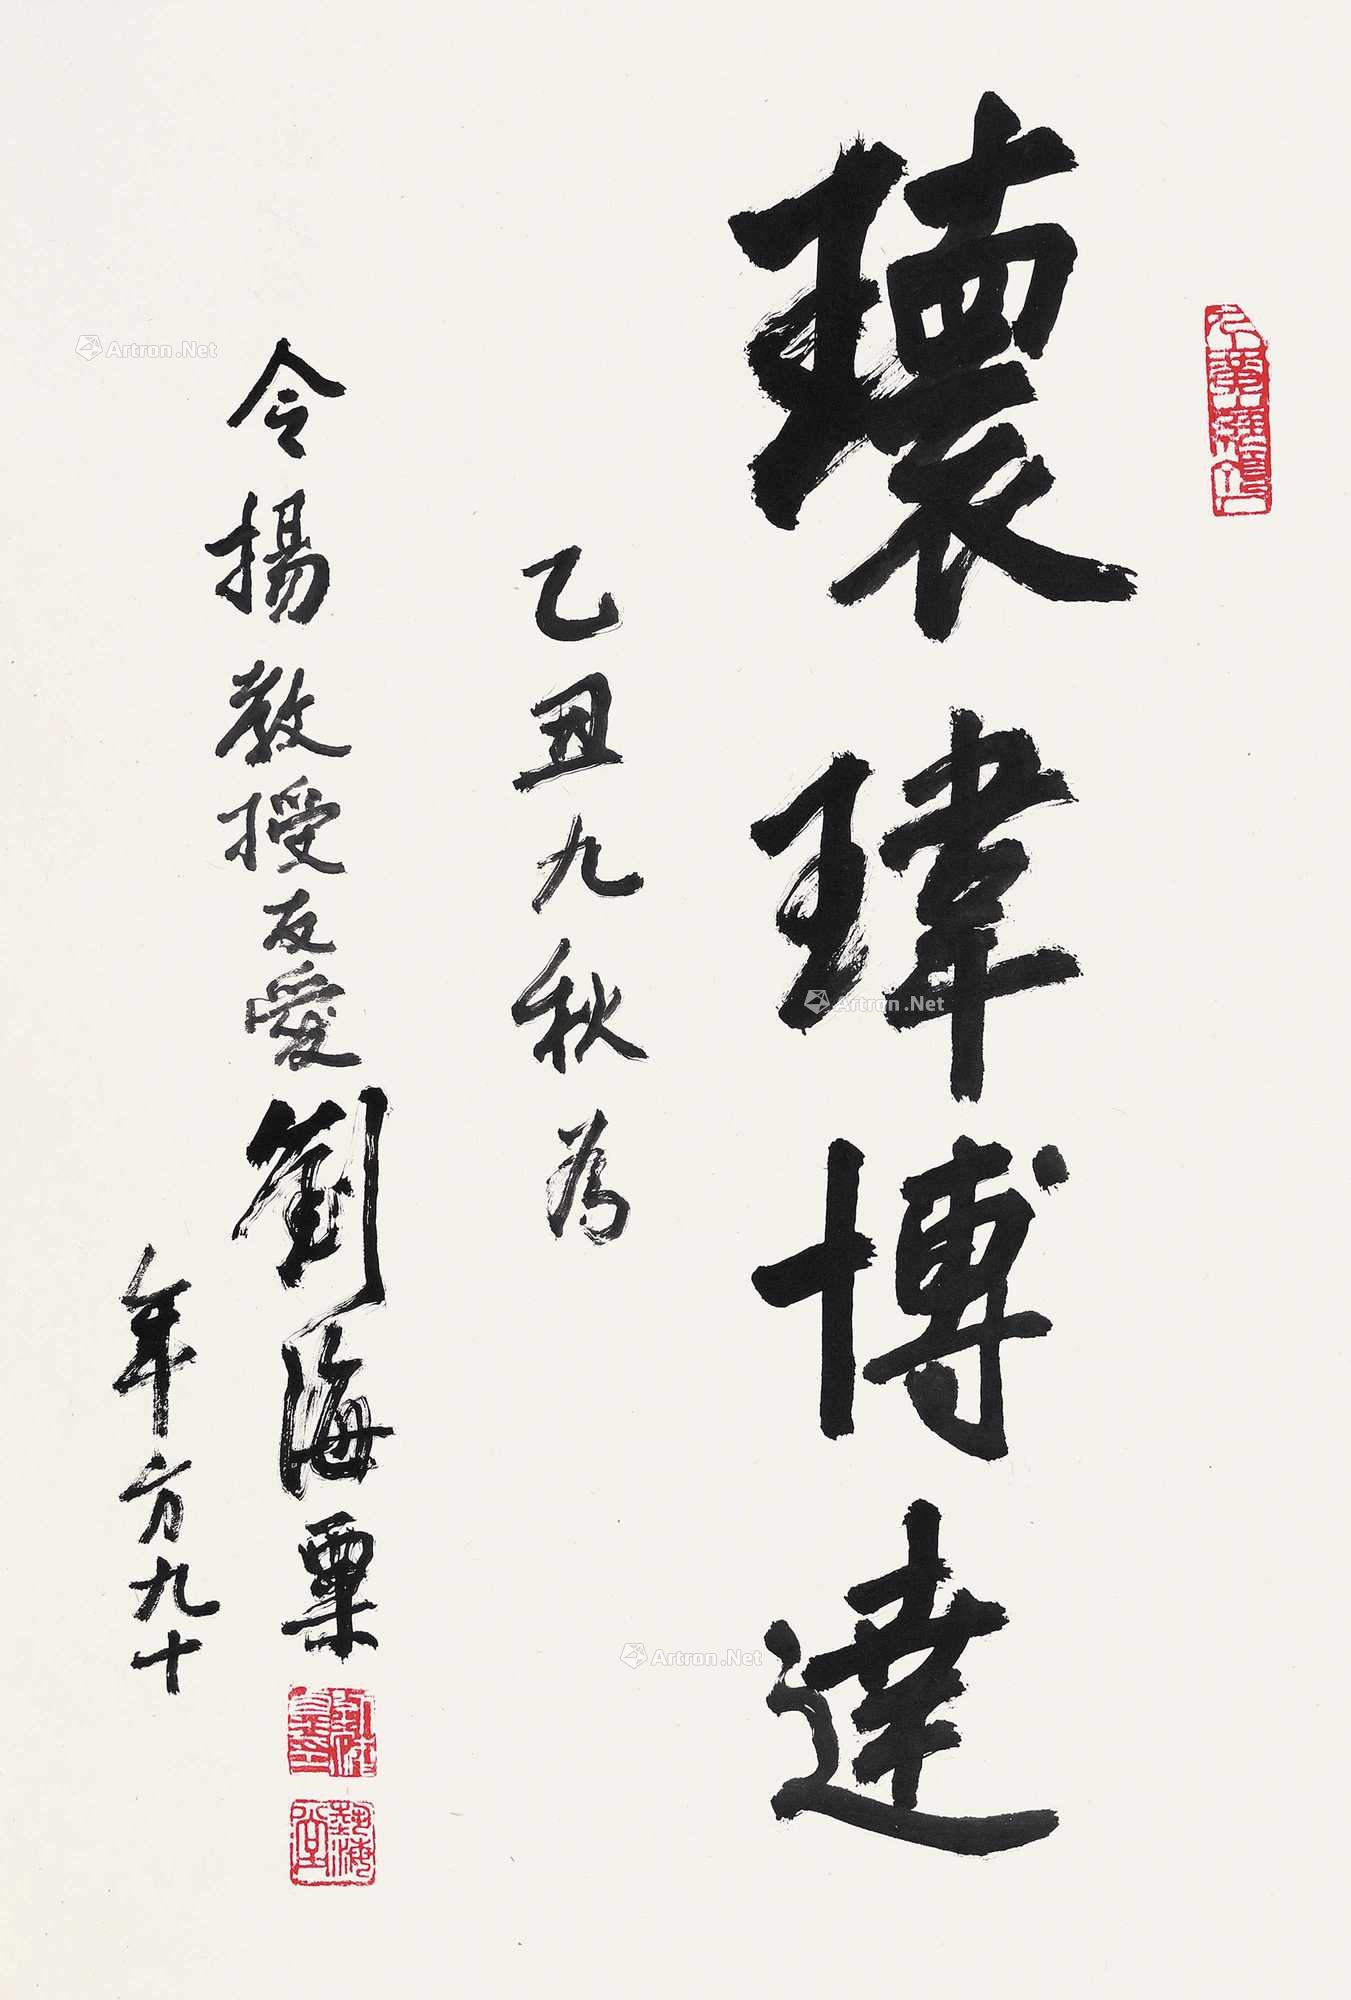 瓌瑋博達
乙丑九秋為
令揚教授友愛劉海粟
年方九十
藝海堂
Artron.Net
Artron.Net
Artron.Net